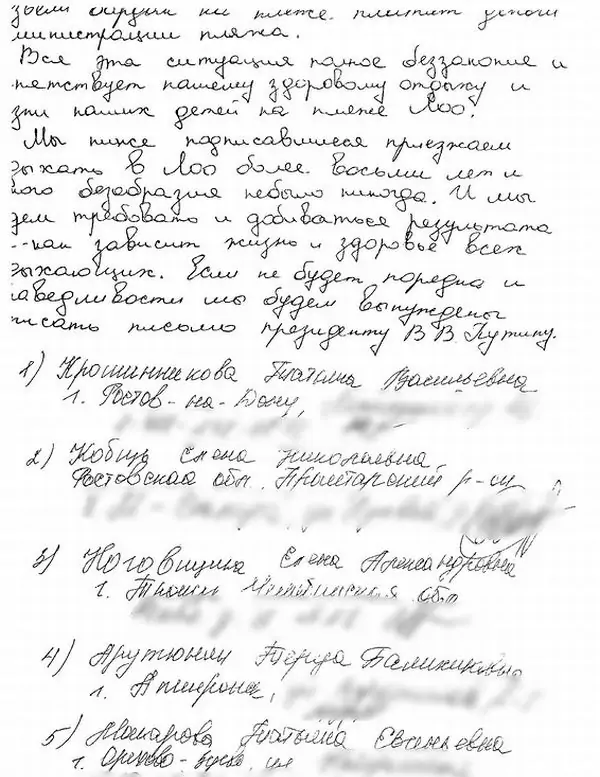 зьем округи на пляже платит деньги
министрации пляжа.
Вся эта ситуация полное беззаконие и
пятствует нашему здоровому отдыху и
зни наших детей на пляже Лоо.
Мы ниже подписавшиеся приезжаем
дыхать в Лоо более восьми лет и
кого безобразия небыло никогда. И мы
дем требовать и добиваться результата
так как зависит жизнь и здоровье всех
дыхающих. Если не будет порядка и
раведливости мы будем вынуждены
писать письмо президенту В В Путину.
1) Крошинникова Татьяна Васильевна
г. Ростов-на-Дону,
2) Кобец Елена Николаевна,
Ростовская обл. Пролетарский р-он
3) Ноговицина Елена Александровна
г. Троицк Челябинская обл
4) Арутюнян
г. Апшеронск,
5) Макарова Татьяна Евгеньевна
г. Орехово-Зуево